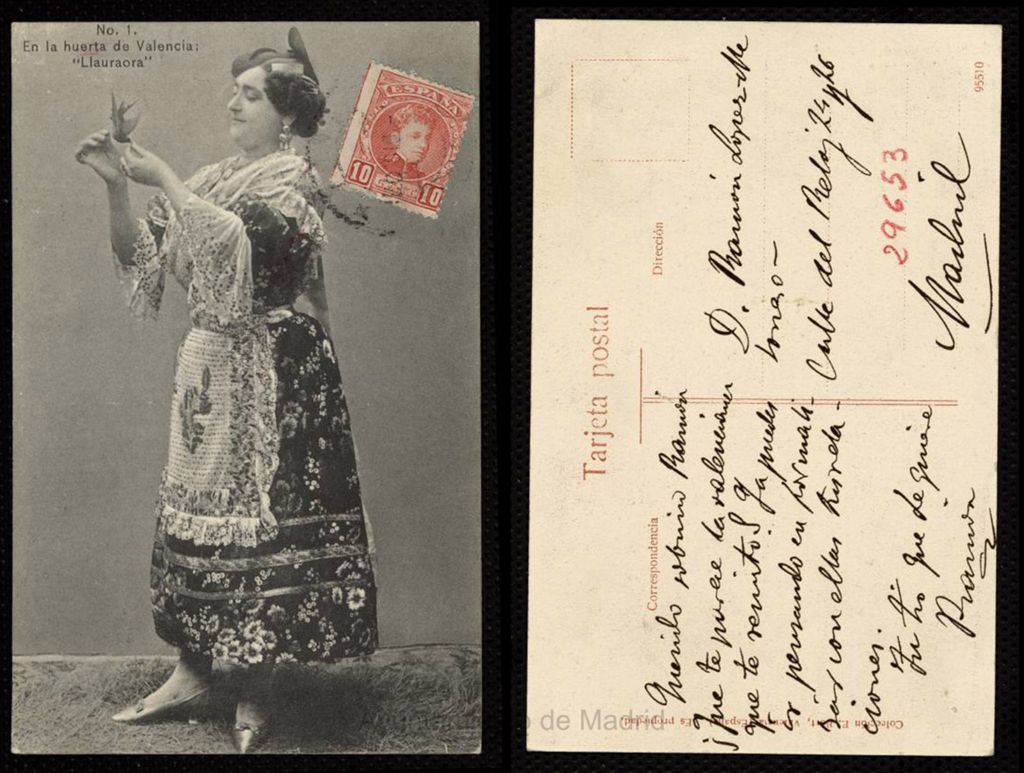 No. 1.
En la huerta de Valencia:
"Llauraora"
ESPAÑA
10 10
95510
Tarjeta postal
Correspondencia
Dirección
Querido sobrino Ramón
¡Que te parece la valenciana
que te remito? Ya puedes
ir pensando en
con ellas
ciones.
Tu tío que te quiere
Ramón
D. Ramón Lopez
Calle del Reloj 24
29653
Madrid
Colección España Es propiedad
Ayuntamiento de Madrid